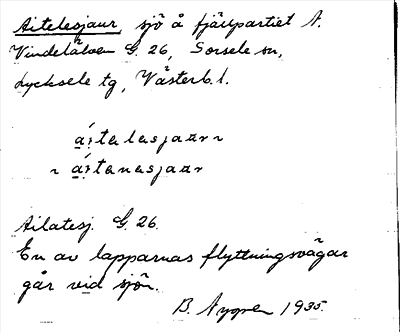 Aitelesjaur, sjö å fjällpartiet N.
Vindelälven G. 26, Sorsele sn,
Lycksele tg, Västerb. l.
a͕i̯talasjaur ~
~ a͕i̯tanasjaur
Ailatesj. G. 26.
En av lapparnas flyttningsvägar
går vid sjön.
B. Nygren 1935.